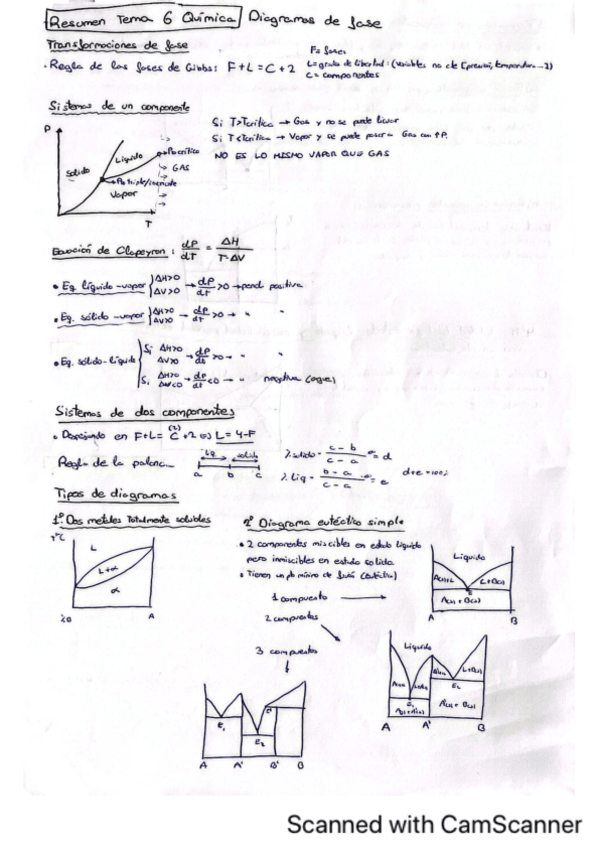 Resumen Tema 6 Química Diagramas de fase
Transformaciones de fase
F= fases
· Regla de las fases de Gibbs: F+L=C+2
L=grado de libertad: (variables no cte (presión, temperatura...2)
C= componentes
Sistemas de un componente
P
Sólido
Líquido
→ Pto crítico
→ GAS
→ Pto triple/
Vapor
T
Si T>Tcrítica → Gas y no se puede licuar
Si T<Tcrítica → Vapor y se puede pasar a Gas con ↑P.
NO ES LO MISMO VAPOR QUE GAS
Ecuación de Clapeyron: dP/dT = ΔH/T·ΔV
• Eq líquido-vapor ΔH>0 ΔV>0 → dP/dT >0 → pend. positiva
• Eq. sólido-vapor ΔH>0 ΔV>0 → dP/dT >0 → " "
• Eq. sólido-líquido Si ΔH>0 ΔV>0 → dP/dT >0 → " "
Si ΔH>0 ΔV<0 → dP/dT <0 → " negativa (agua)
Sistemas de dos componentes
• Despejando en F+L= C(2) +2 ⇔ L=4-F
Regla de la palanca
liq sólido
a b c
λ sólido = c-b/c-a = d
λ liq = b-a/c-a = e
d+e=100%
Tipos de diagramas
1º Dos metales totalmente solubles
TºC
L
L+α
α
A
2º Diagrama eutéctico simple
• 2 componentes miscibles en estado líquido
pero inmiscibles en estado sólido.
• Tienen un pto mínimo de fusión (eutéctico)
1 compuesto →
Líquido
A(s)+L
L+B(s)
E
A(s) + B(s)
A B
2 compuestos
Líquido
L+B(s)
E₁
E₂
A(s) + B(s)
A A' B
3 compuestos
E₁
E₂
A A' B' B
Scanned with CamScanner